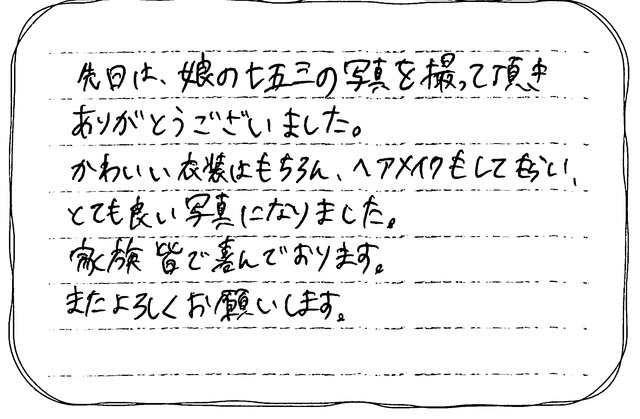 先日は、娘の七五三の写真を撮って頂き
ありがとうございました。
かわいい衣装はもちろん、ヘアメイクもしてもらい、
とても良い写真になりました。
家族皆で喜んでおります。
またよろしくお願いします。